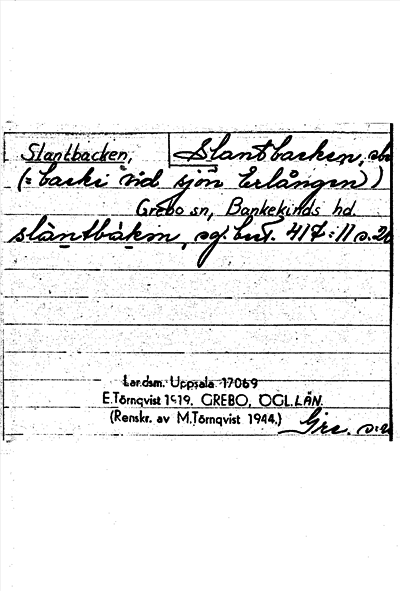 Slantbacken, Slantbacken,
(= backe vid sjön Erlången)
Grebo sn, Bankekinds hd.
Landsm. Uppsala 17069
E.Törnqvist 1919. GREBO, ÖGL.LÄN.
(Renskr. av M.Törnqvist 1944.)